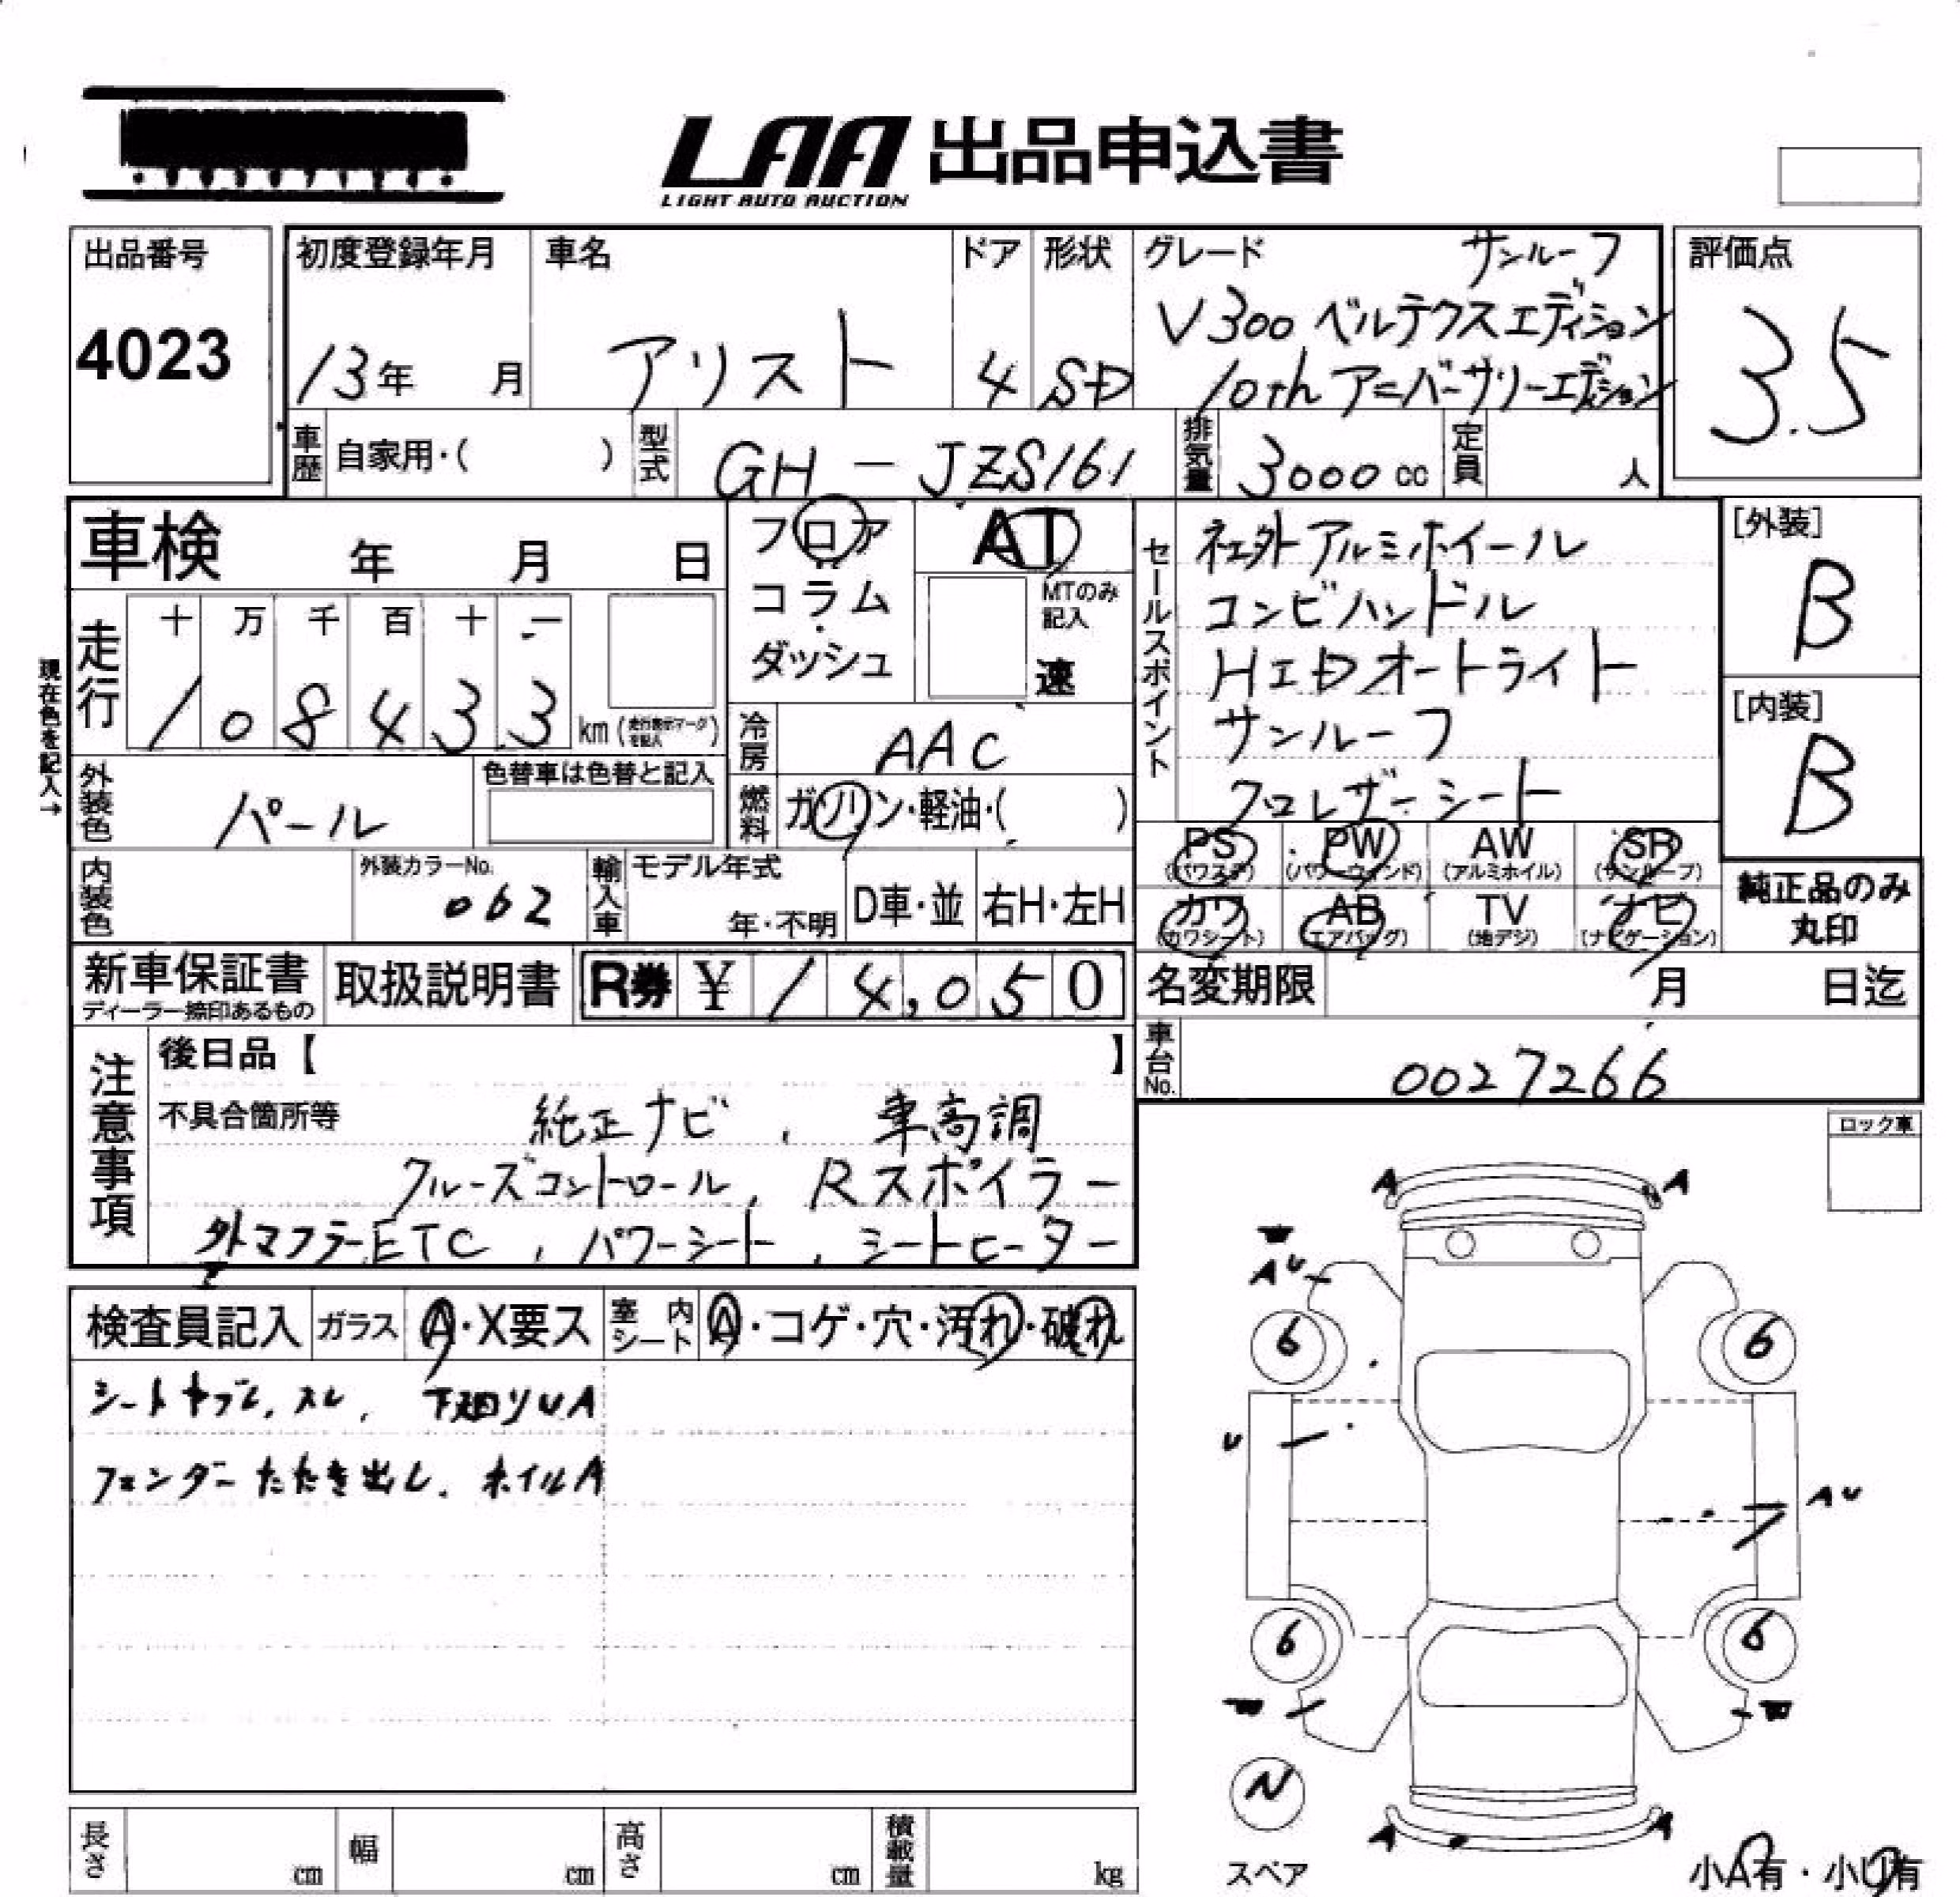 LAA 出品申込書
LIGHT AUTO AUCTION
出品番号
4023
初度登録年月
13年 月
車名
アリスト
ドア
4
形状
SD
グレード
サンルーフ
V300 ベルテクスエディション
10th アニバーサリーエディション
評価点
3.5
車歴 自家用・( )
型式 GH-JZS161
排気量 3000 cc
定員 人
車検 年 月 日
フロア
コラム
・
ダッシュ
AT
MTのみ
記入
速
セールスポイント
社外アルミホイール
コンビハンドル
HIDオートライト
サンルーフ
クロレザーシート
[外装]
B
[内装]
B
現在色を記入→
走行
十 万 千 百 十 一
1 0 8 4 3 3 km (走行表示マークを記入)
冷房 AAC
外装色 パール
色替車は色替と記入
燃料 ガソリン・軽油・( )
PS (パワステ)
PW (パワーウィンド)
AW (アルミホイル)
SR (サンルーフ)
カワ (カワシート)
AB (エアバッグ)
TV (地デジ)
ナビ (ナビゲーション)
純正品のみ
丸印
内装色
外装カラーNo.
062
輸入車
モデル年式
年・不明
D車・並
右H・左H
新車保証書
ディーラー捺印あるもの
取扱説明書
R券 ¥ 14,050
名変期限 月 日迄
車台No. 0027266
注意事項
後日品【 】
不具合箇所等
純正ナビ、車高調
クルーズコントロール、Rスポイラー
外マフラーETC、パワーシート、シートヒーター
検査員記入
ガラス A・X要ス
室内シート A・コゲ・穴・汚れ・破れ
シートヤブレ、スレ、下廻りUA
フェンダーたたき出し、ホイルA
ロック車
A A
AU
6 6
U
AU
6 6
N
スペア
A A
小A有・小U有
長さ cm
幅 cm
高さ cm
積載量 kg